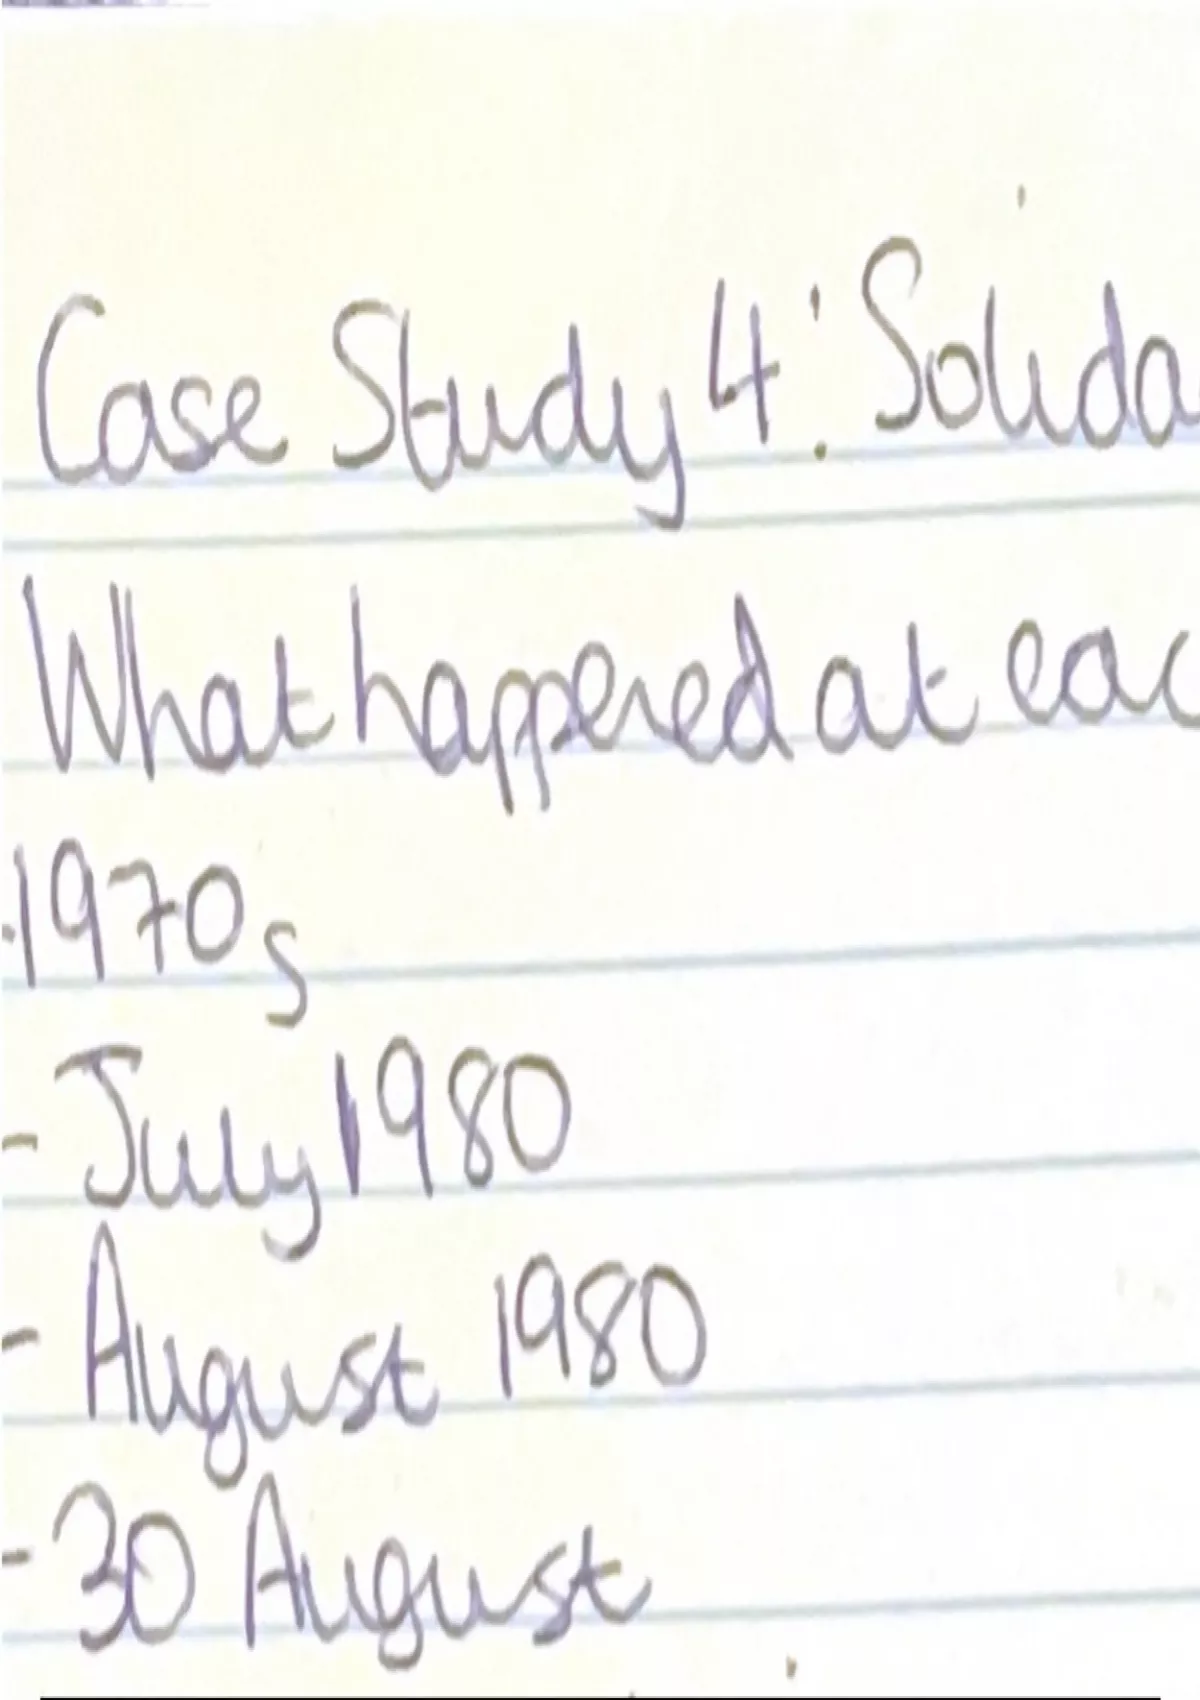 Case Study 4: Solida
What happened at eac
-1970s
- July 1980
- August 1980
- 30 August